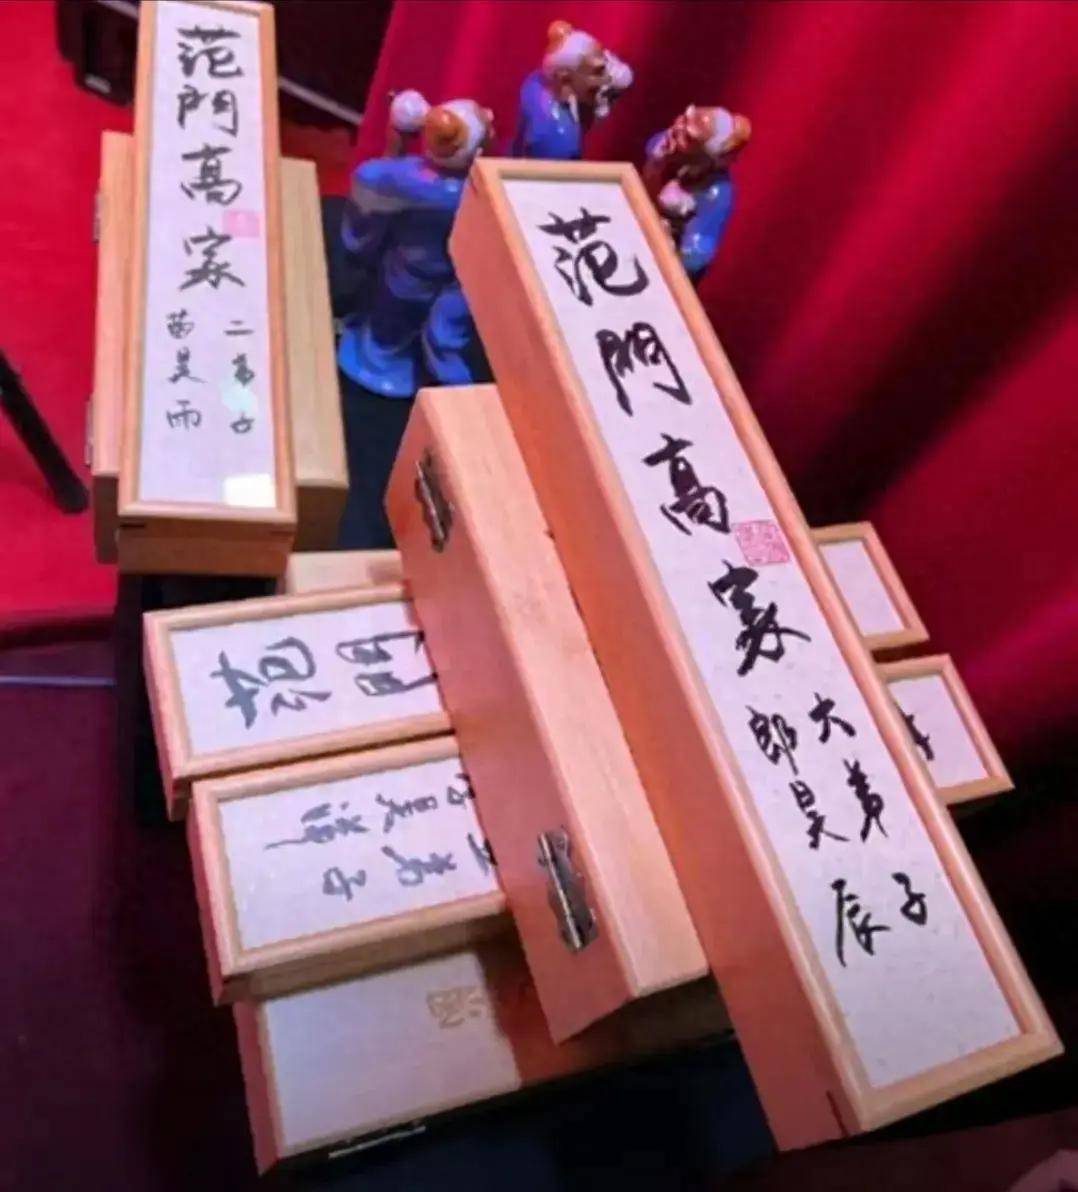 范門高家
二弟子
苗昊雨
范門高家
大弟子
郎昊辰
范門
弟子
昊